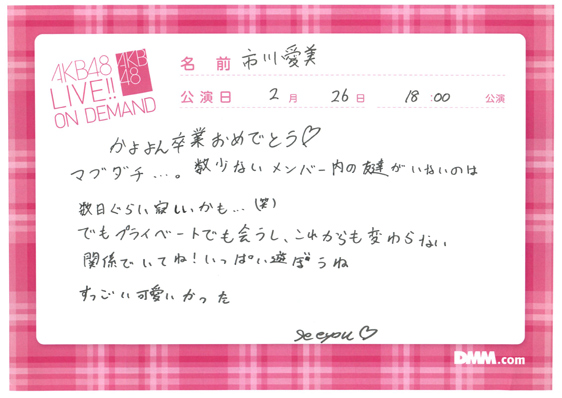 AKB48
LIVE!!
ON DEMAND
AKB
48
名 前 市川愛美
公演日 2月 26日 18:00 公演
かよよん卒業おめでとう♡
マブダチ…。数少ないメンバー内の友達がいないのは
数日ぐらい寂しいかも…(笑)
でもプライベートでも会うし、これからも変わらない
関係でいてね!いっぱい遊ぼうね
すっごい可愛いかった
see you♡
DMM.com